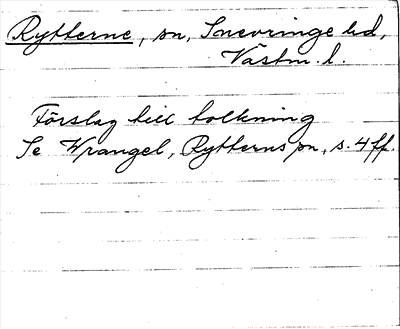 Rytterne, sn, Snevringe hd,
Västm. l.
Förslag till tolkning
Se Wrangel, Rytterns sn, s. 4 ff.